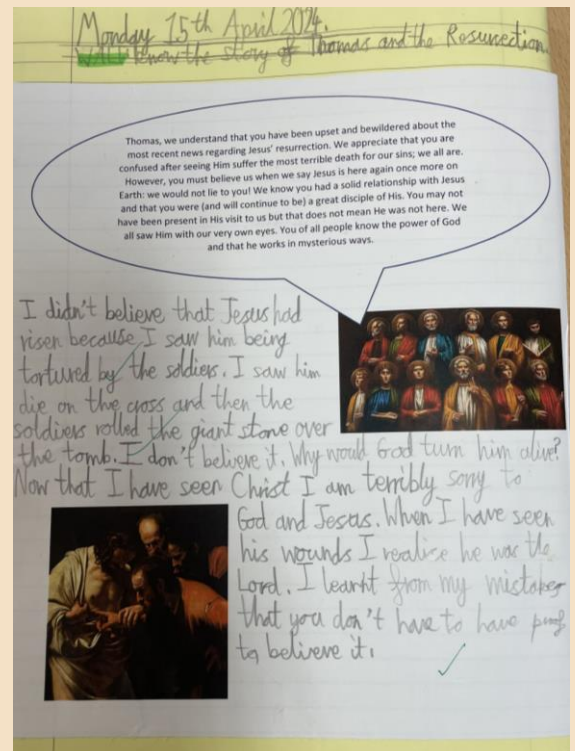 Monday 15th April 2024.
WALT know the story of Thomas and the Resurrection.
Thomas, we understand that you have been upset and bewildered about the
most recent news regarding Jesus' resurrection. We appreciate that you are
confused after seeing Him suffer the most terrible death for our sins; we all are.
However, you must believe us when we say Jesus is here again once more on
Earth: we would not lie to you! We know you had a solid relationship with Jesus
and that you were (and will continue to be) a great disciple of His. You may not
have been present in His visit to us but that does not mean He was not here. We
all saw Him with our very own eyes. You of all people know the power of God
and that he works in mysterious ways.
I didn't believe that Jesus had
risen because I saw him being
tortured by the soldiers. I saw him
die on the cross and then the
soldiers rolled the giant stone over
the tomb. I don't believe it. Why would God turn him alive?
Now that I have seen Christ I am terribly sorry to
God and Jesus. When I have seen
his wounds I realise he was the
Lord. I learnt from my mistakes
that you don't have to have proof
to belireve it.